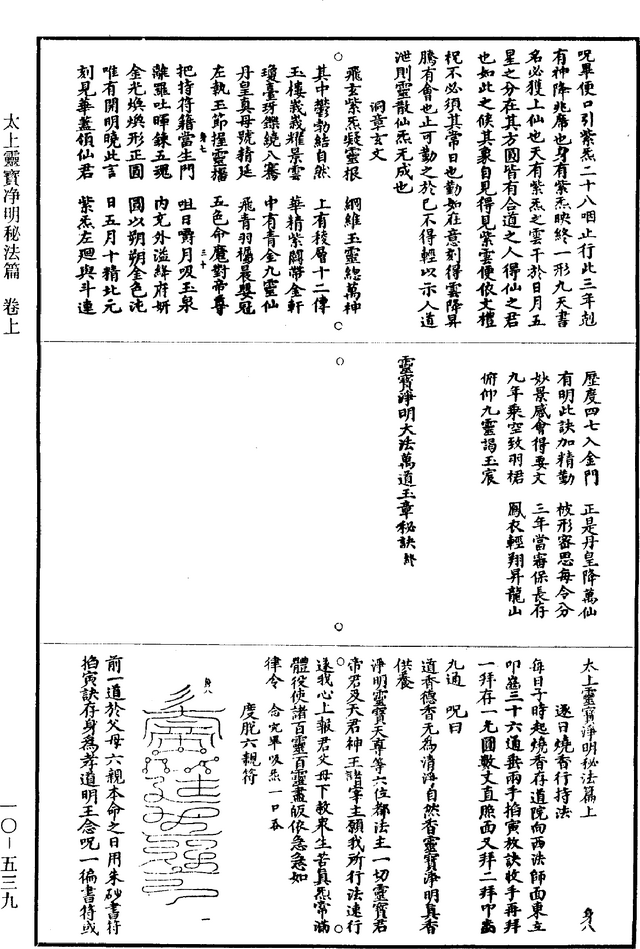 呪畢便口引紫炁二十八咽止行此三年剋
有神降兆席也身有紫炁映終一形九天書
名必獲上仙也天有紫炁之雲干於日月五
星之分在其方圓皆有合道之人得仙之君
也如此之候其象自見得見紫雲便依文禮
祝不必須其常日也勤如在意刻得雲降昇
騰有會也止可勤之於已不得輕以示人道
泄則靈散仙炁无成也
洞章玄文
飛玄紫炁凝靈根 綱維玉靈總萬神
其中鬱勃結自然 上有校層十二傳
玉樓峩峩耀景雲 華精紫闕帶金軒
瓊臺玡鑠繞八騫 中有青金九靈仙
丹皇真母號精延 飛青羽褐晨嬰冠
左執玉節握靈旛 五色命魔對帝尊
把持符籍當生門 咀日嚼月吸玉泉
離羅吐暉鍊五魂 內充外溢絳府妍
金光煥煥形正圓 圓以朔朔金色沌
唯有開明曉此言 日五月十精北元
刻見華蓋領仙君 紫炁左廻與斗連
歷度四七入金門 正是丹皇降萬仙
有明此訣加精勤 被形審思每令分
妙景感會得要文 三年當審保長存
九年乘空致羽裙 鳳衣輕翔昇龍山
俯仰九靈謁玉宸
靈寶淨明大法萬道玉章秘訣終
太上靈寶淨明秘法篇上 身八
逐日燒香行持法
每日子時起燒香存道院向西法師面東立
叩齒三十六道畢兩手掐寅放訣收手再拜
一拜存一光圓數丈直照面又拜二拜叩齒
九通 呪曰
道香德香无為清淨自然香靈寶淨明真香
供養
淨明靈寶天尊等六位都法主一切靈寶君
帝君及天君神王諸宰主願我所行法速行
遂我心上報君父母下救衆生苦真炁常滿
體役使諸百靈百靈盡皈依急急如
律令 念完畢吸炁一口吞
度脫六親符
身八
前一道於父母六親本命之日用朱砂書符
掐寅訣存身為孝道明王念呪一徧書符或
太上靈寶净明秘法篇 卷上
一〇－五三九